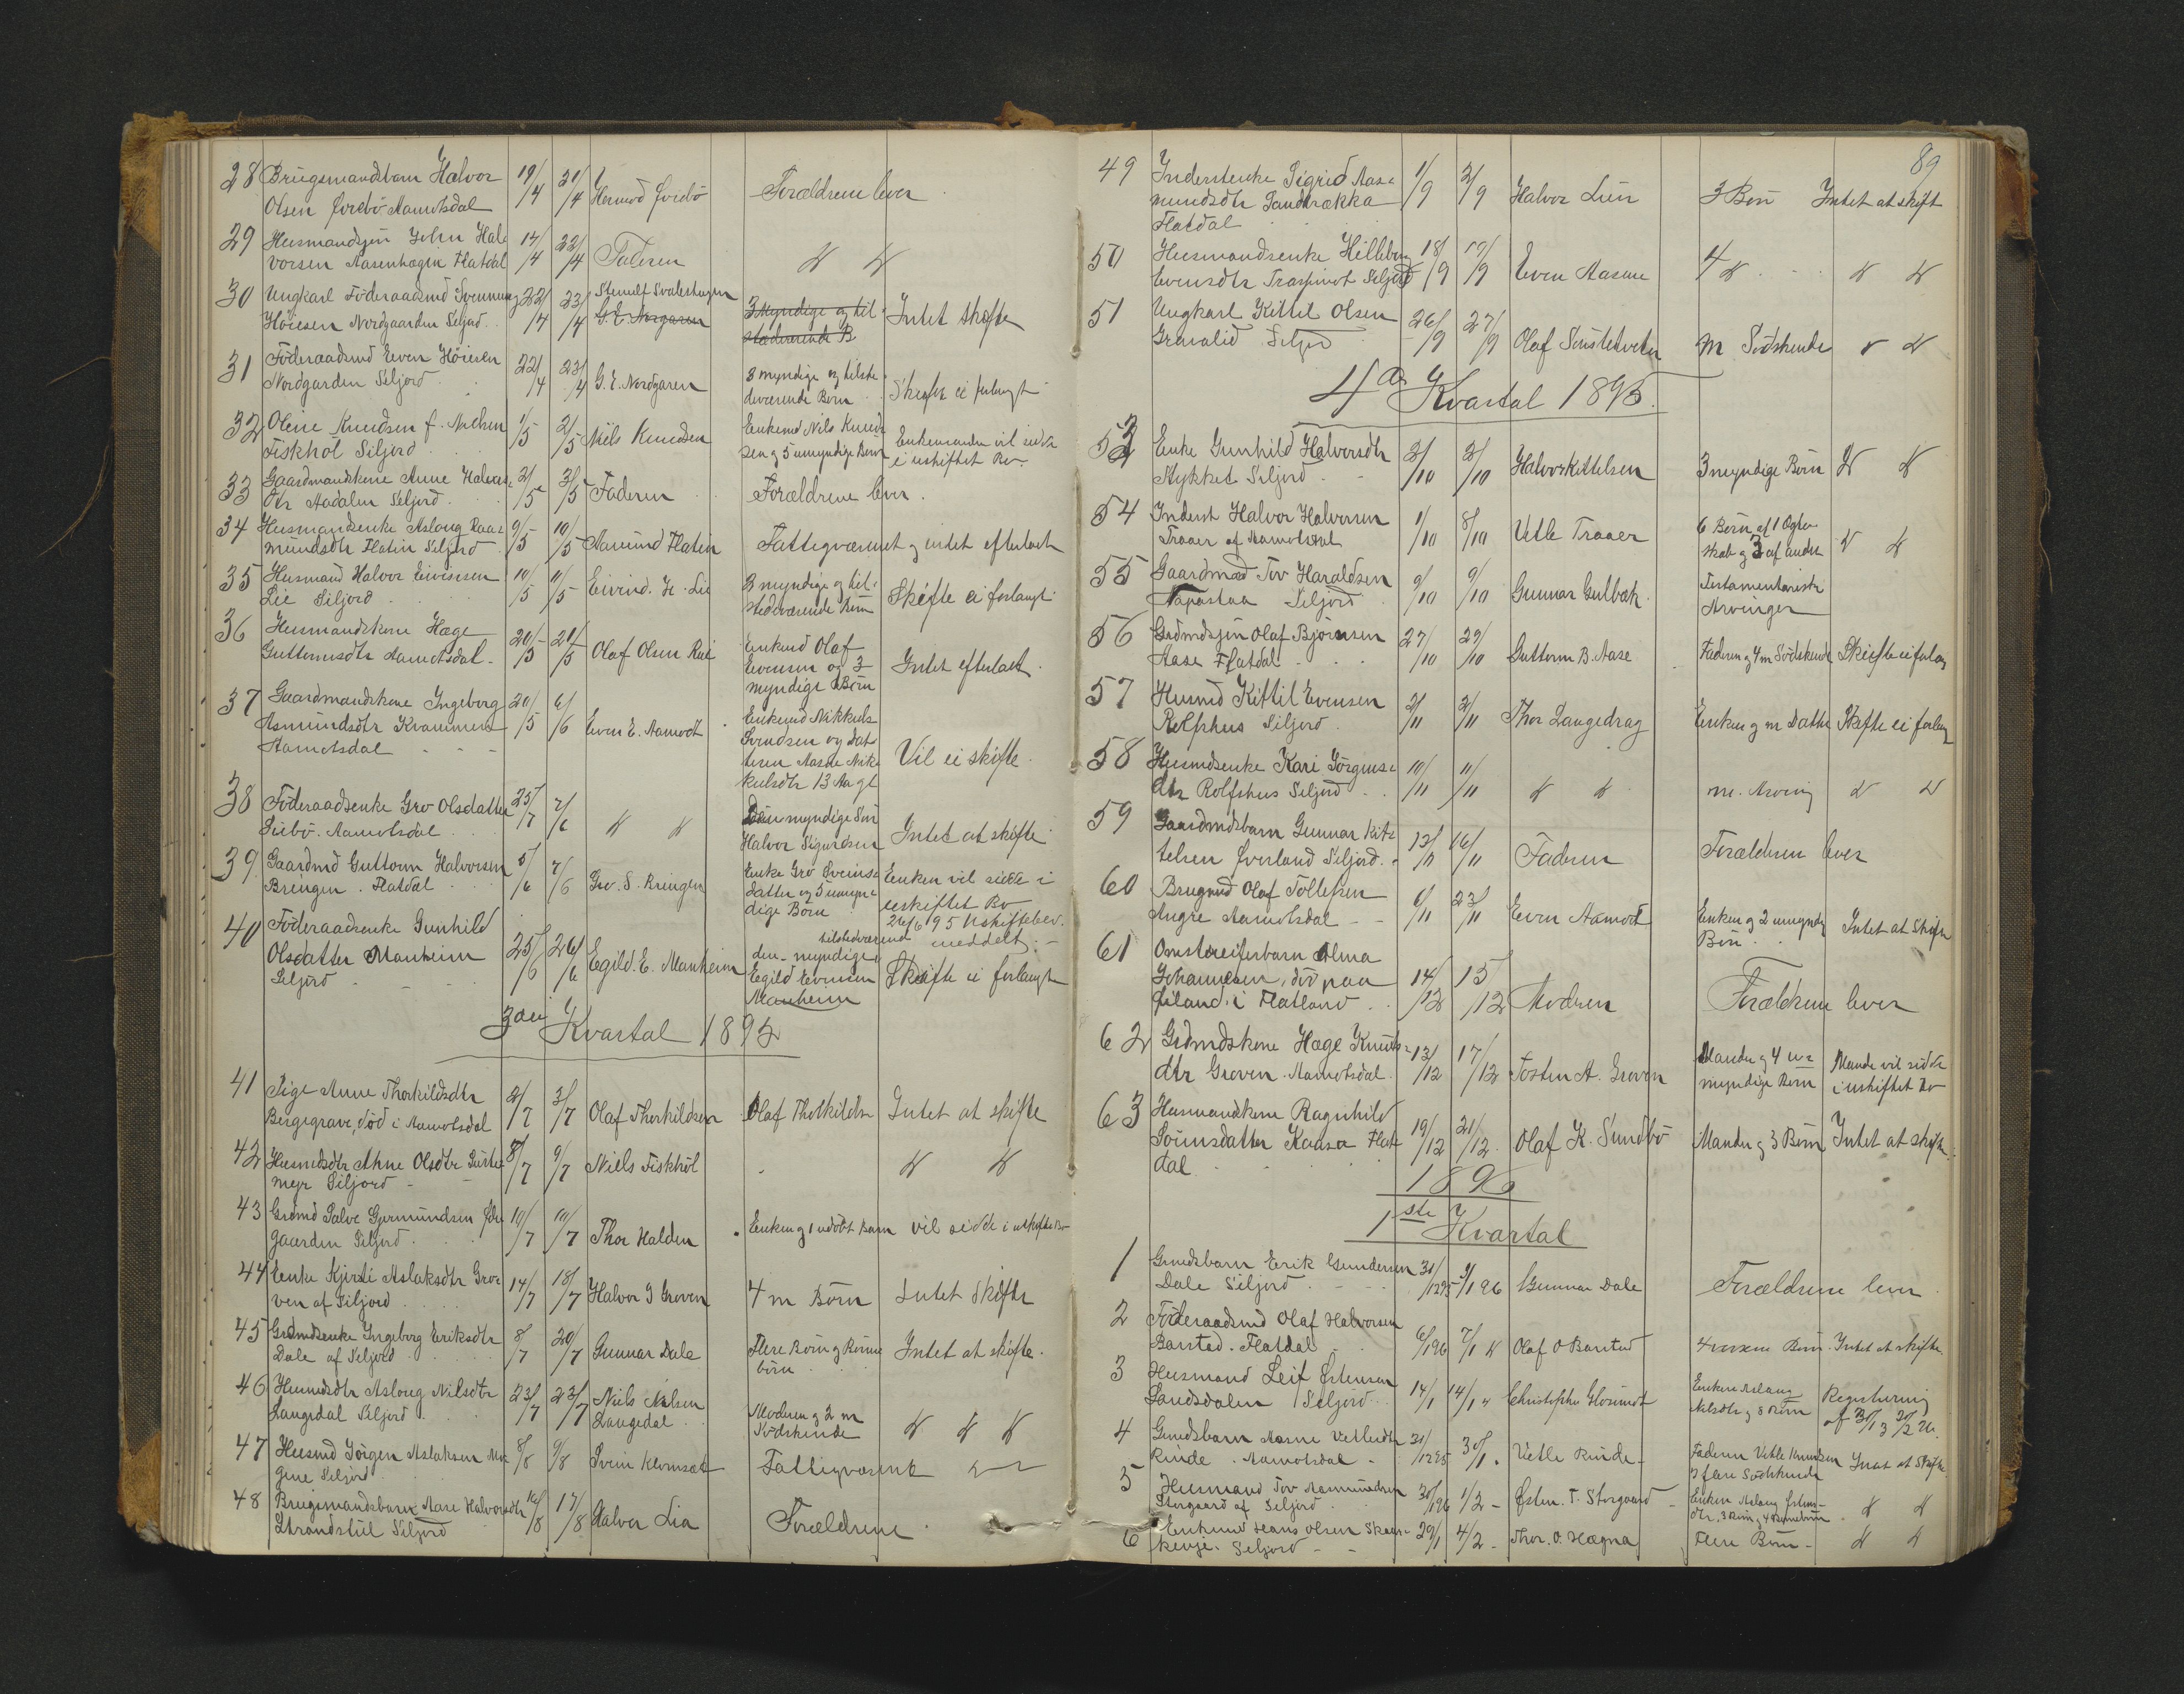 28 Brugsmandsbarn Halvor 19/4 21/4 Hermod Forebö Forældrene lever
Olsen Forebö Aamotsdal
29 Husmandssøn John Hal- 17/4 22/4 Faderen " "
vorsen Aasenhagen Flatdal
30 Ungkarl Föderaadsmd Svennung 22/4 23/4
Höiesen Nordgaarden Seljord G. E. Norgaren 3 Myndige og til- Intet skifte
stedværende B
31 Föderaadsmd Even Höiesen 22/4 23/4 G. E. Nordgaren 8 myndige og tilste- Skifte ei forlangt
Nordgarden Seljord deværende Børn
32 Oline Knudsen f. Nielsen 1/5 2/5 Niels Knudsen Enkemd Nils Knud- Enkemanden vil sidde
Fiskhöl Siljord sen og 5 umyndige Børn i uskiftet Bo
33 Gaardmandskone Anne Halvors- 2/5 3/5 Faderen Forældrene lever.
dtr Aadalen Seljord
34 Husmandsenke Aslaug Raas- 9/5 10/5 Aamund Flatin Fattigvæsenet og intet efterladt
mundsdtr Flatin Seljord
35 Husmand Halvor Eivindsen 10/5 11/5 Eivind H. Lie 3 myndige og til- Skifte ei forlangt
Lie Siljord stedeværende Børn
36 Husmandskone Hæge 20/5 21/5 Olaf Olsen Rui Enkemd Olaf Intet efterladt
Guttormsdtr Aamotsdal Evensen og 3
myndige Børn
37 Gaardmandskone Ingeborg 20/5 6/6 Even E. Aamodt Enkemd Nikkuls
Asmundsdtr Kvammen Svendsen og Dat- Vil ei skifte
Aamotsdal teren Aasne Nik-
kulsdtr 13 Aa gl
38 Föderaadsenke Gro Olsdatter 25/7 7/6 " " Den myndige Søn Intet at skifte
Aamotsdal Halvor Sigurdsen
39 Gaardmd Guttorm Halvorsen 5/6 7/6 Gro. S. Bringen Enke Gro Sveins- Enken vil sidde i
Bringen. Flatdal datter og 5 umyn- uskiftet Bo
dige Børn 26/6 95 Uskiftebev.
40 Föderaadsenke Gunhild tilstedværend meddelt.
Olsdatter Manheim 25/6 26/6 Egild. E. Manheim den myndige
Seljord Egild Evensen Skifte ei forlangt
Manheim
3die Kvartal 1895
41 Pige Anne Thorkildsdtr 2/7 3/7 Olaf Thorkildsen Olaf Thorkilds Intet at skifte
Bergegrave, död i Aamotsdal
42 Husmdsdtr Anne Olsdtr 8/7 9/7 Niels Fiskhöl " "
myr Siljord
43 Grdmd Salve Gjermundsen 10/7 10/7 Thor Halden Enken og 1 udöbt Barn vil sidde i uskiftet Bo
gaarden Siljord
44 Enke Kjersti Aslaksdtr Gro- 14/7 18/7 Halvor J Groven 4 m Börn Intet Skifte
ven af Siljord
45 Grdmdsenke Ingeborg Eriksdtr 8/7 20/7 Gunnar Dale Flere Börn og Börne- Intet at skifte
Dale af Seljord börn
46 Husmdsdtr Aslaug Nilsdtr 23/7 23/7 Niels Nilsen Moderen og 2 m " " "
Langedal Seljord Langedal Södskende
47 Husmd Jörgen Aslaksen Mo- 8/8 9/8 Svein Klomsæt Fattigvæsenet " "
gene Seljord
48 Brugsmandsbarn Aase Halvorsdtr 16/8 17/8 Halvor Lia Forældrene
Strandstul Seljord
89
49 Inderstenke Sigrid Aas- 1/9 2/9 Halvor Lun 3 Börn Intet at skift
mundsdtr Sandbrækka
Flatdal
50 Husmandsenke Hilleborg 18/9 19/9 Even Aasane 4 " " "
Evensdtr Seljord
51 Ungkarl Kittil Olsen 26/9 27/9 Olaf Sönstetveiten m Södskende " "
Gravalid Seljord
4de Kvartal 1895.
53 Enke Gunhild Halvorsdtr 2/10 2/10 Halvor Kittelsen 3 myndige Börn " "
Stykket Siljord
54 Inderst Halvor Halvorsen 1/10 8/10 Vetle Traaer 6 Börn af 1 Ægte-
Traaer af Aamotsdal skab og 3 af andet " "
55 Gaardmad Tov Haraldsen 9/10 9/10 Gunnar Gulbæk Testamentariske
Napastaa Seljord Arvinger
56 Grdmdssøn Olaf Björnsen 27/10 29/10 Guttorm B. Aase Faderen og 4 m Södskende Skifte ei forlang
Aase Flatdal
57 Husmd Kittil Evensen 2/11 2/11 Thor Langedrag Enken og m Datter Skifte ei forlang
Rolfshus Siljord
58 Husmdsenke Kari Jörgens- 10/11 11/11 " " m. Arving " "
dtr Rolfshus Seljord
59 Gaardmdsbarn Gunnar Kit- 13/11 16/11 Faderen Forældren lever
telsen Øverland Seljord
60 Brugsmd Olaf Tollefsen 6/11 23/11 Even Aamodt Enken og 2 umyndg Intet at Skifte
Angre Aamotsdal Börn
61 Omstreiferbarn Alma
Johannesen, död paa 14/12 15/12 Moderen Forældrene lever
i Flatland
62 Grdmdskone Hæge Knuts- 13/12 17/12 Tosten A. Groven Manden og 4 u- Mande vil sidde
dtr Groven. Aamotsdal. myndige Børn i uskiftet Bo
63 Husmandskone Ragnhild
Sveinsdatter Kaasa Flat- 19/12 21/12 Olaf K. Sundbö Manden og 3 Børn Intet at skifte
dal
1896
1ste Kvartal
1 Grmdsbarn Erik Gundersen 31/12 95 2/1 96 Gunnar Dale Forældrene lever
Dale Siljord
2 Föderaadsmd Olaf Halvorsen
Barstad. Flatdal 6/1 96 7/1 " Olaf O Barstad 4 voxne Børn. Intet at skifte.
3 Husmand Leif Østensen 14/1 14/1 " Christopher Glosimodt Enken Aslaug Registrering
Sandsdalen Seljord Nilsdtr og 8 Børn
4 Grmdsbarn Aasne Vetlesdtr 31/12 95 30/1 " Vetle Rinde Faderen Vetle Knudsen Intet at Skifte
Rinde. Aamotsdal og flere Södskende
5 Husmand Tov Aasmundsen 30/1 96 1/2 - Østen. T. Storgaard Enken Aslaug Østens- " "
Storgaard af Seljord dtr, 3 Børn, 4 Børnebörn
6 Enkemd Hans Olsen Skaar- 29/1 4/2 - Thor. O. Hægna Flere Børn - " "
Seljord